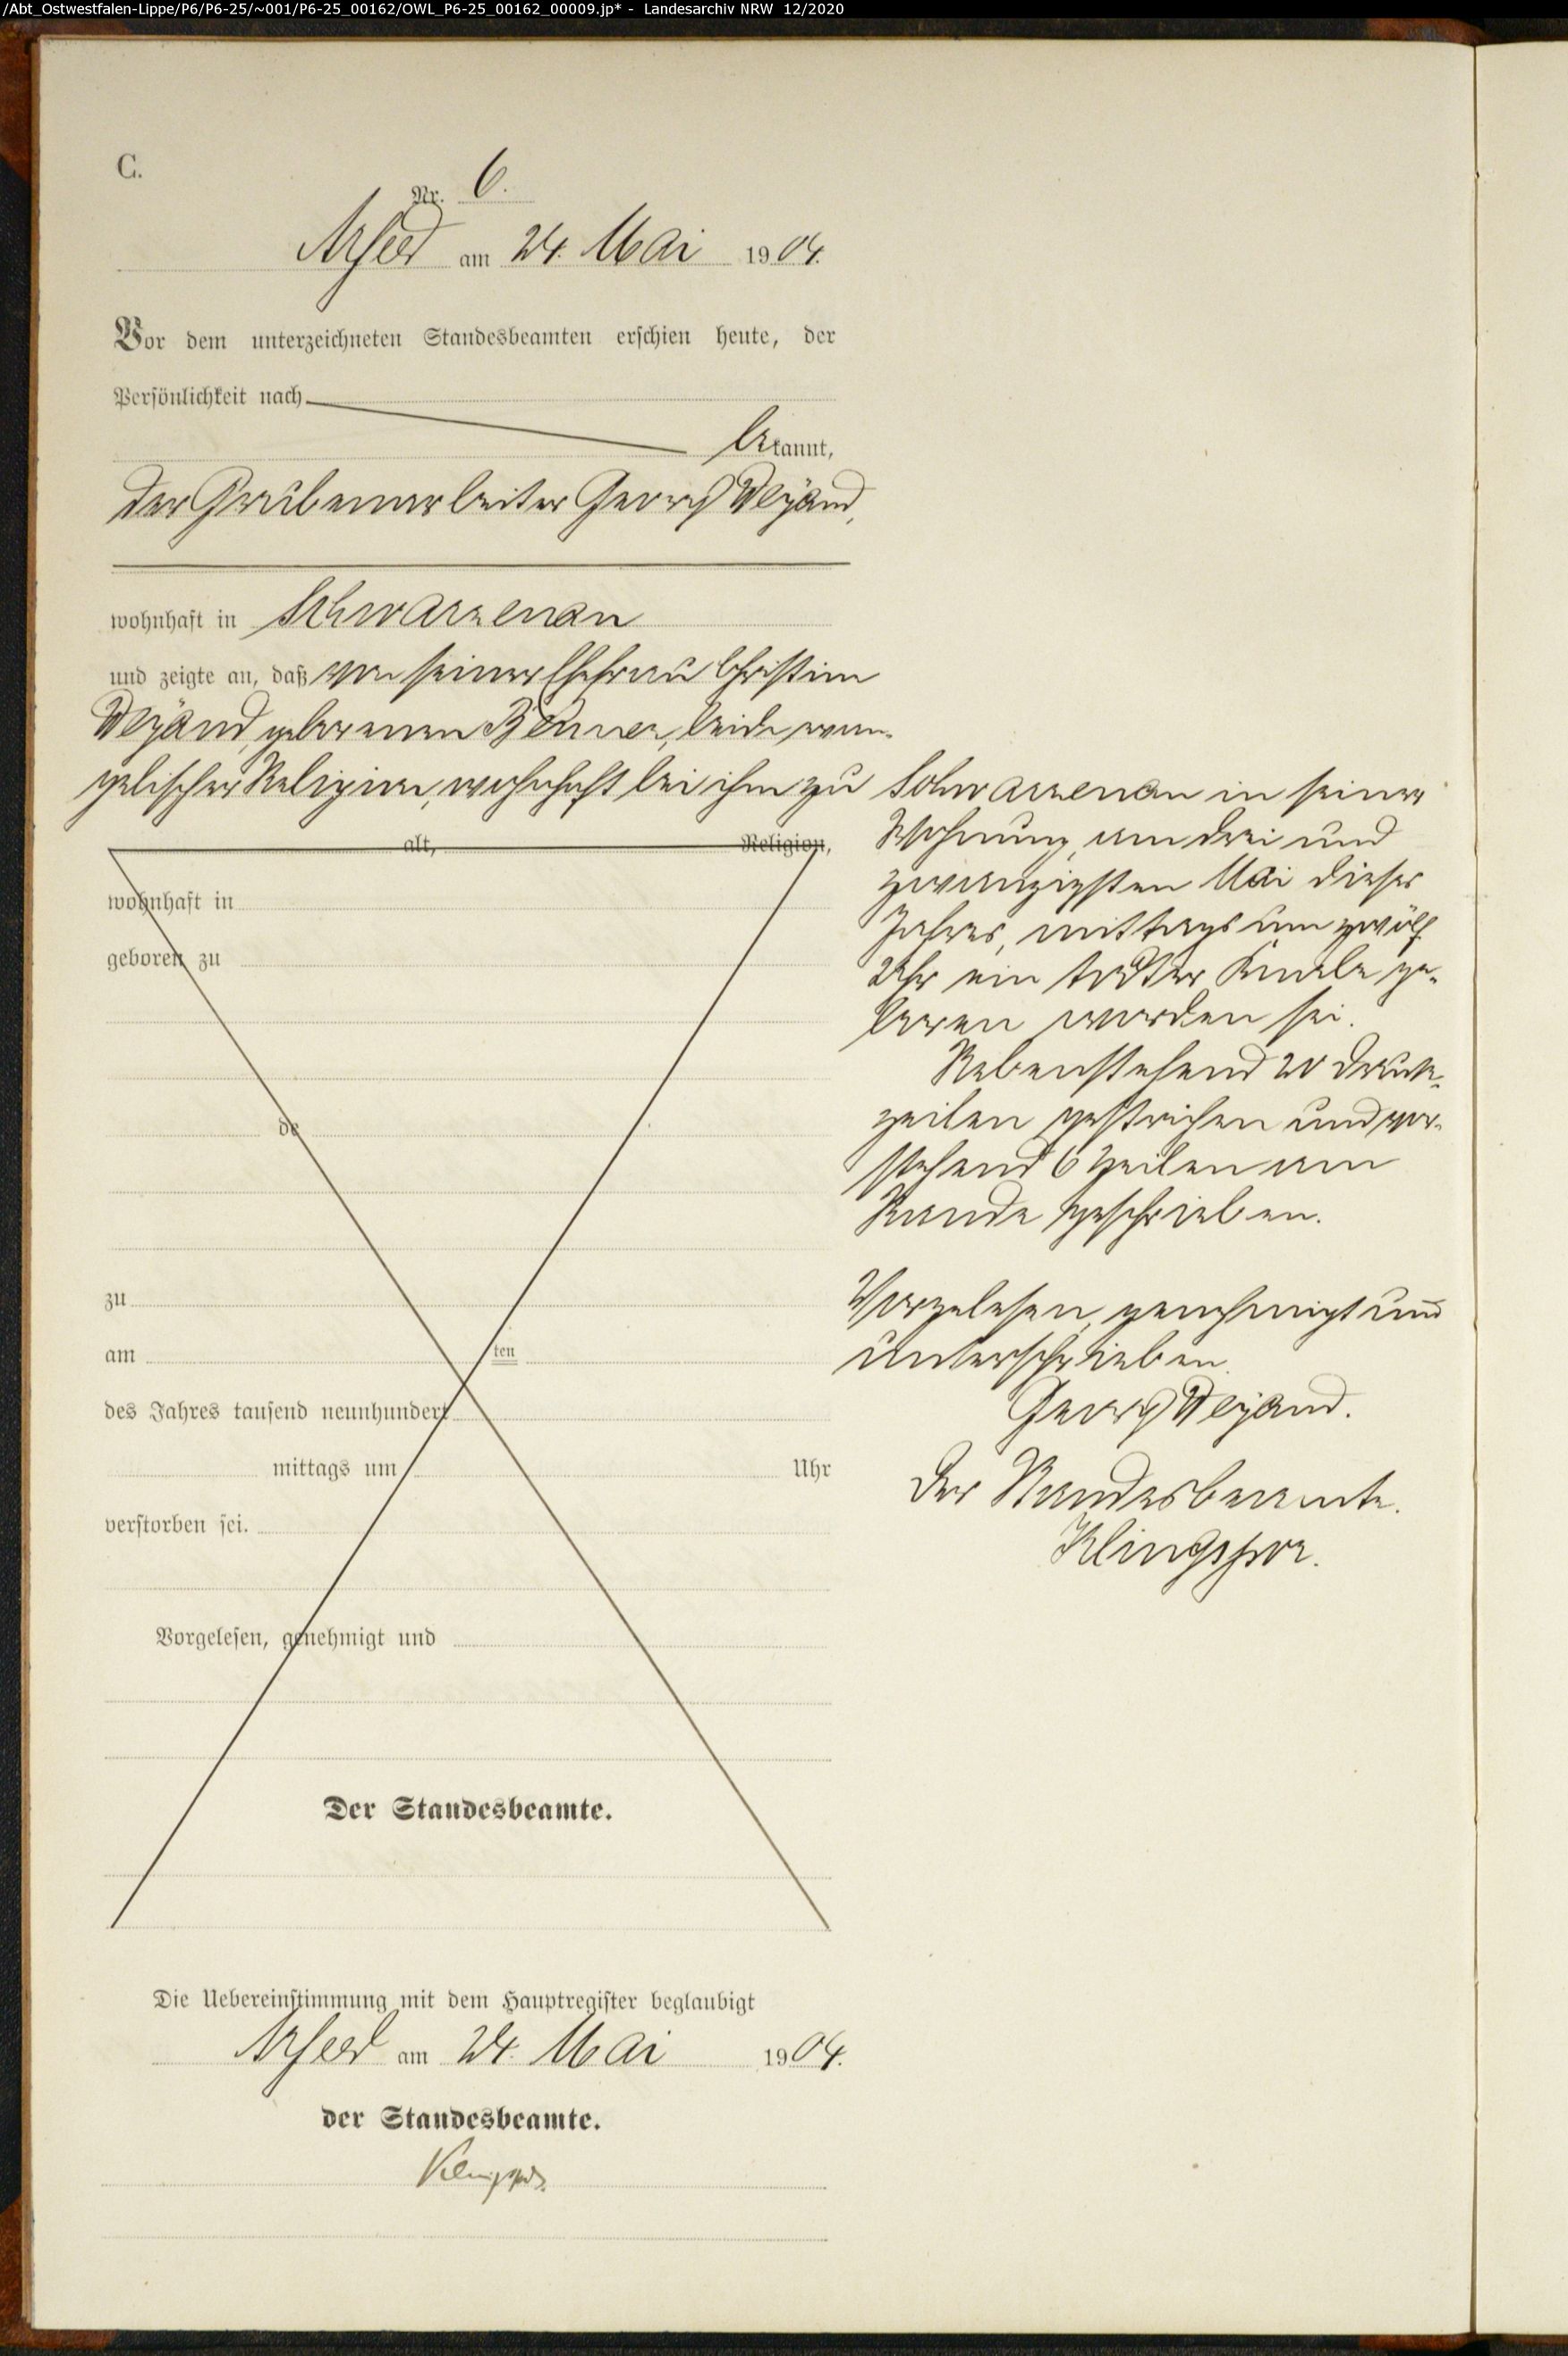 /Abt_Ostwestfalen-Lippe/P6/P6-25/~001/P6-25_00162/OWL_P6-25_00162_00009.jp* - Landesarchiv NRW 12/2020
C.
Nr. 6.
Arfeld am 24. Mai 1904.
Vor dem unterzeichneten Standesbeamten erschien heute, der
Persönlichkeit nach
bekannt,
der Grubenarbeiter Georg Weyand,
wohnhaft in Schwarzenau
und zeigte an, daß von seiner Ehefrau Christine
Weyand, geborenen Benner, beide evan-
gelischer Religion, wohnhaft bei ihm zu
alt, Religion,
wohnhaft in
geboren zu
de
zu
am ten
des Jahres tausend neunhundert
mittags um Uhr
verstorben sei.
Vorgelesen, genehmigt und
Der Standesbeamte.
Schwarzenau in seiner
Wohnung, am drei und
zwanzigsten Mai dieses
Jahres, mittags um zwölf
Uhr ein todter Knabe ge-
boren worden sei.
Nebenstehend 20 Druck-
zeilen gestrichen und vor-
stehend 6 Zeilen am
Rande geschrieben.
Vorgelesen, genehmigt und
unterschrieben.
Georg Weyand.
Der Standesbeamte.
Klingspor.
Die Uebereinstimmung mit dem Hauptregister beglaubigt
Arfeld am 24. Mai 1904.
der Standesbeamte.
Klingspor.